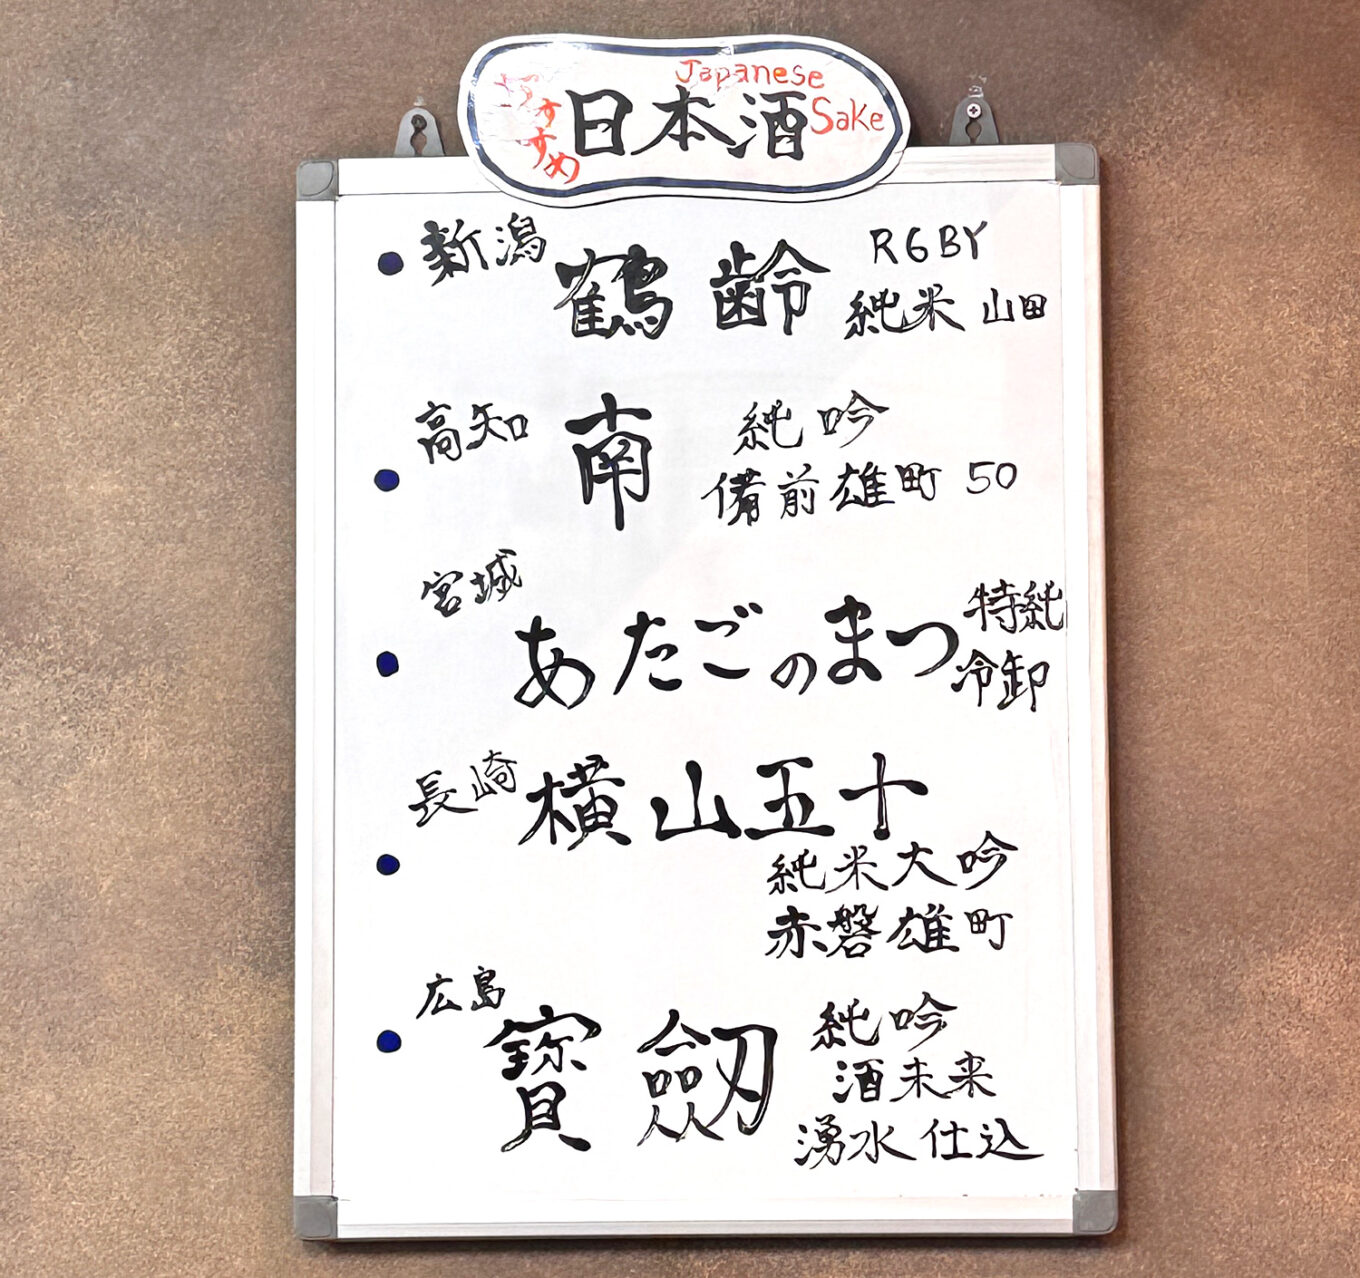 おすすめ
日本酒
Japanese
Sake
新潟
鶴齢
R6BY
純米 山田
高知
南
純吟
備前雄町 50
宮城
あたごのまつ
特純
冷卸
長崎
横山五十
純米大吟
赤磐雄町
広島
寳劔
純吟
酒未来
湧水仕込